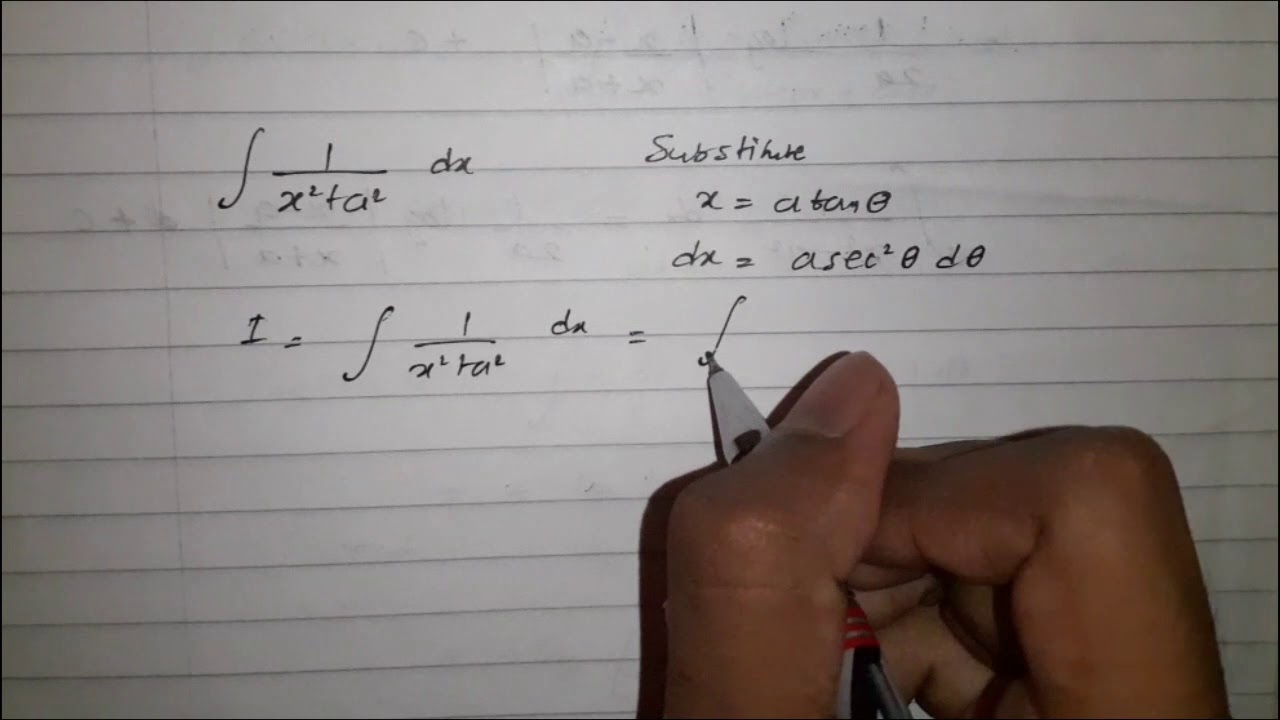 ∫ 1/(x²+a²) dx Substitute
x = a tan θ
dx = a sec² θ dθ
I = ∫ 1/(x²+a²) dx = ∫